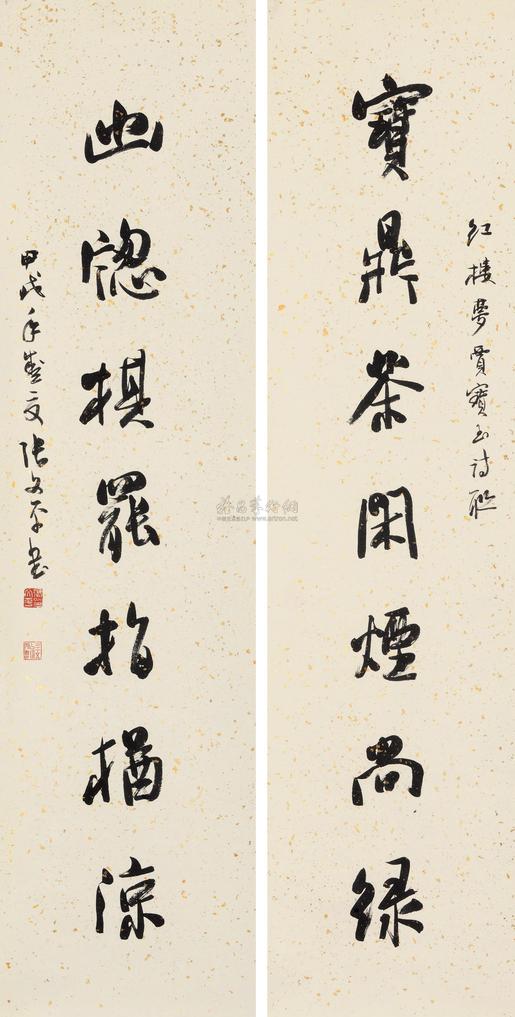 紅樓夢賈寶玉詩聯
寶鼎茶閑煙尚綠
幽牕棋罷指猶涼
甲戌年 張 平書
雅昌藝術網
www.artron.net